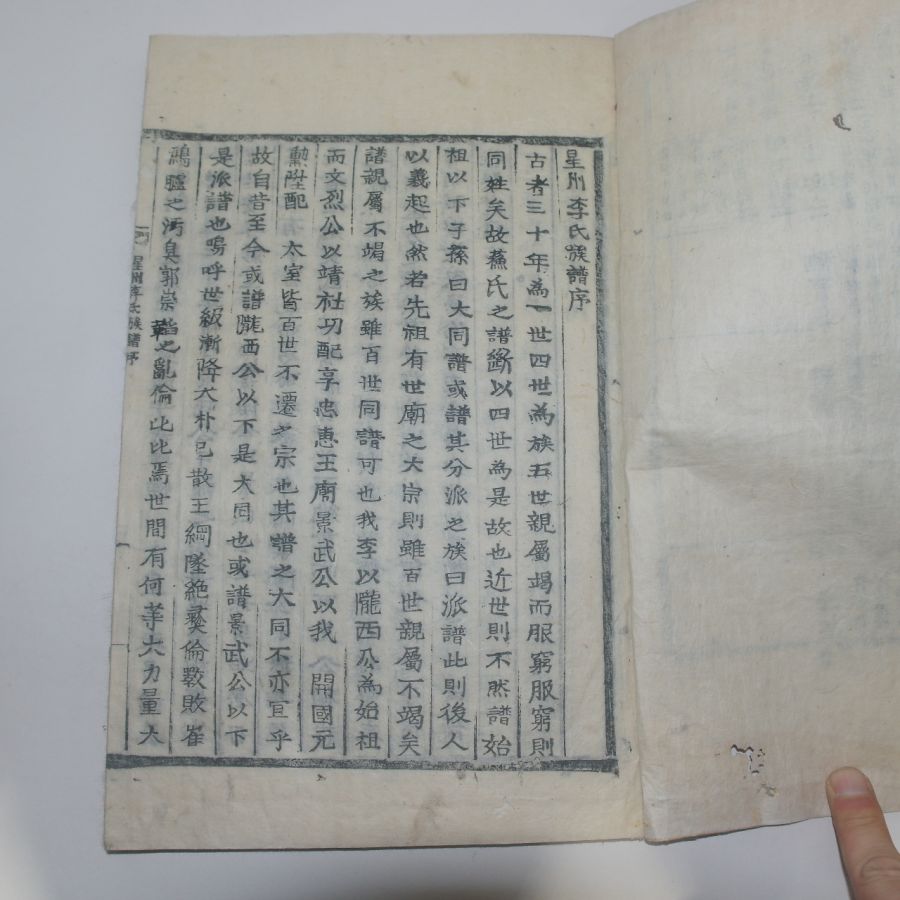 星州李氏族譜序
古者三十年為一世四世為族五世親屬竭而服窮服窮則
同姓矣故蘇氏之譜斷以四世為是故也近世則不然譜始
祖以下子孫曰大同譜或譜其分派之族曰派譜此則後人
以義起也然若先祖有世廟之大宗則雖百世親屬不竭矣
譜親屬不竭之族雖百世同譜可也我李以隴西公為始祖
而文烈公以靖社功配享忠惠王廟景武公以我 開國元
勲陞配 太室皆百世不遷之宗也其譜之大同不亦宜乎
故自昔至今或譜隴西公以下是大同也或譜景武公以下
是派譜也嗚呼世級漸降大朴已散王綱墜絶彛倫斁敗崔
鴻臚之汚臭郭崇韜之亂倫比比焉世間有何等大力量大
星州李氏族譜序